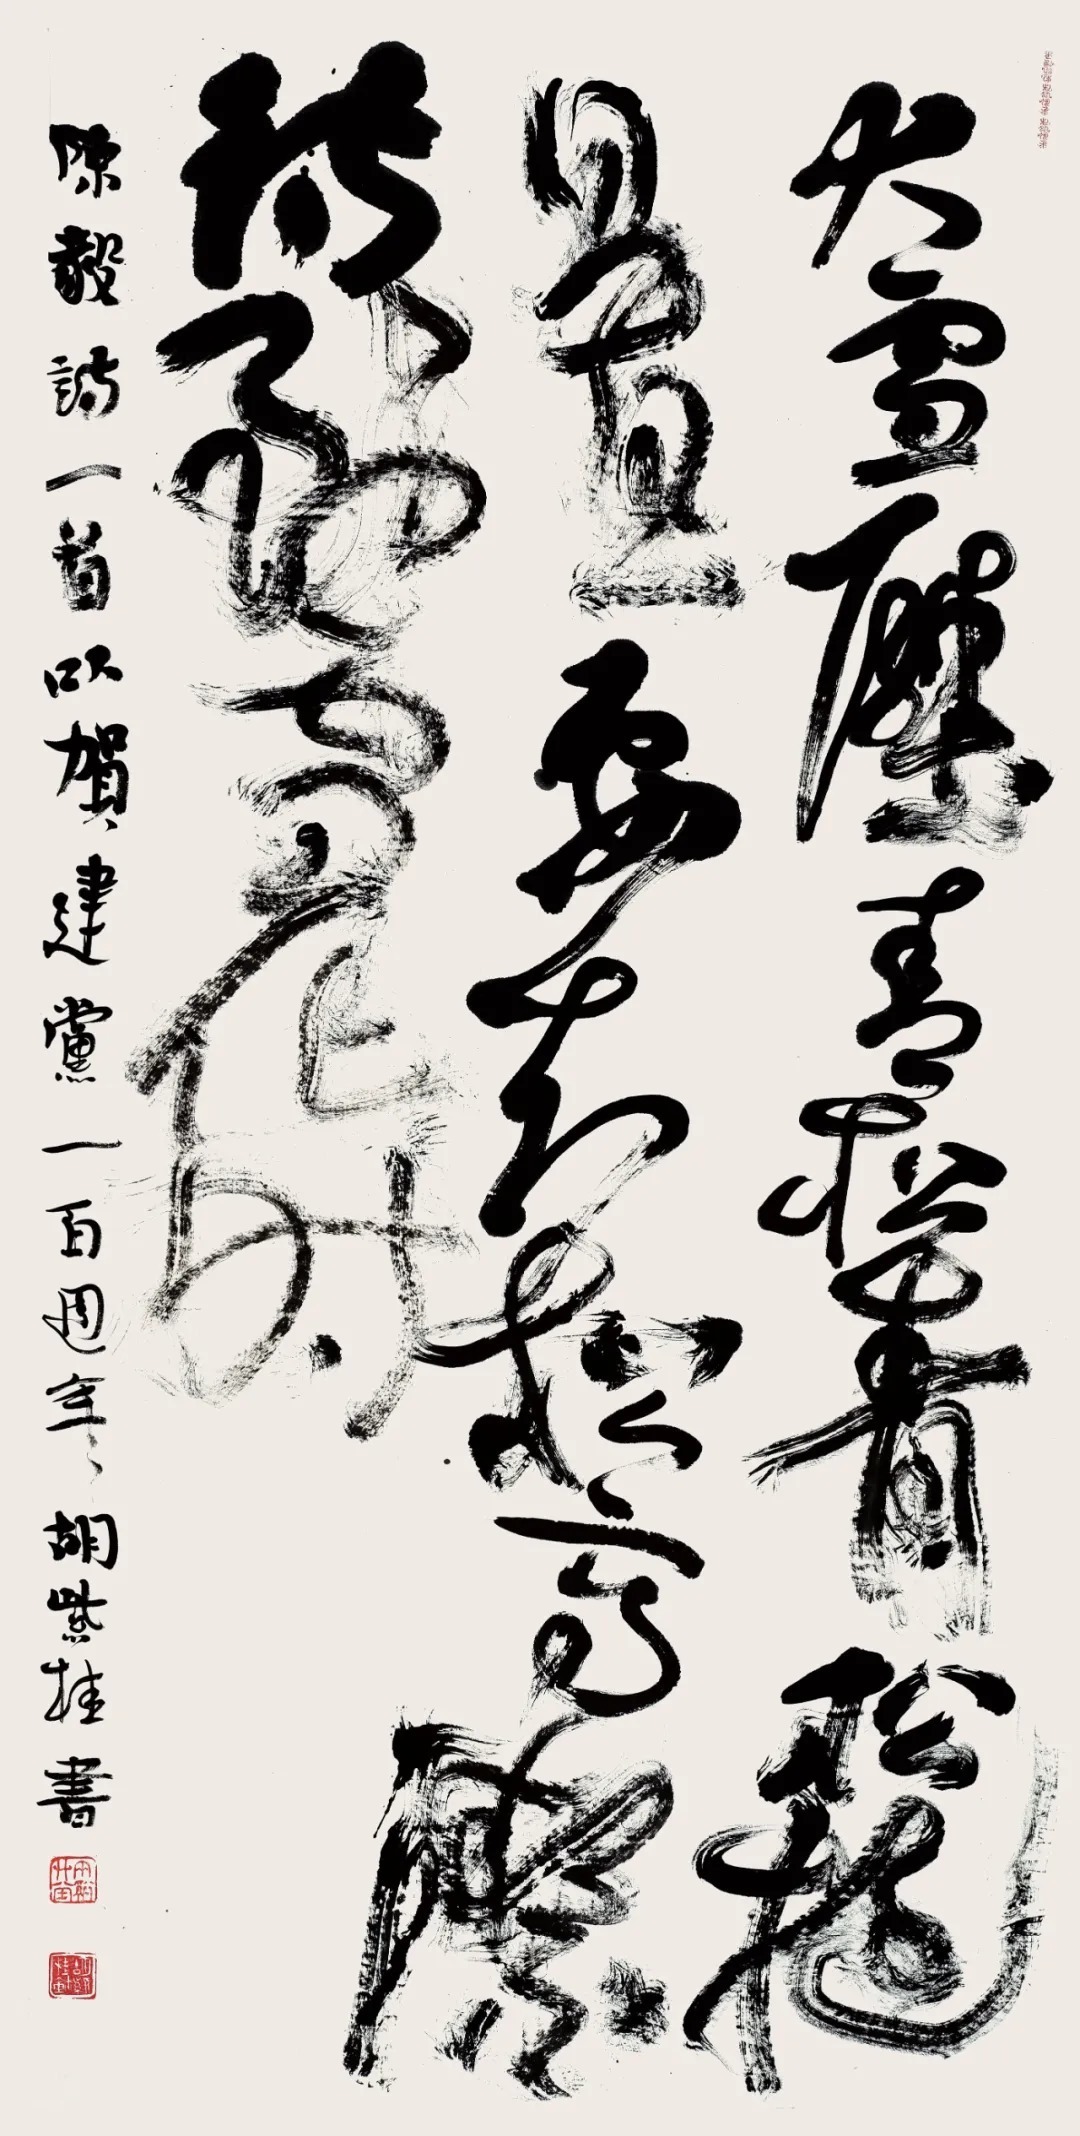 大雪壓青松青松挺
且直要知松高潔
待到雪化時
陳毅詩一首以賀建黨一百週年胡紫桂書